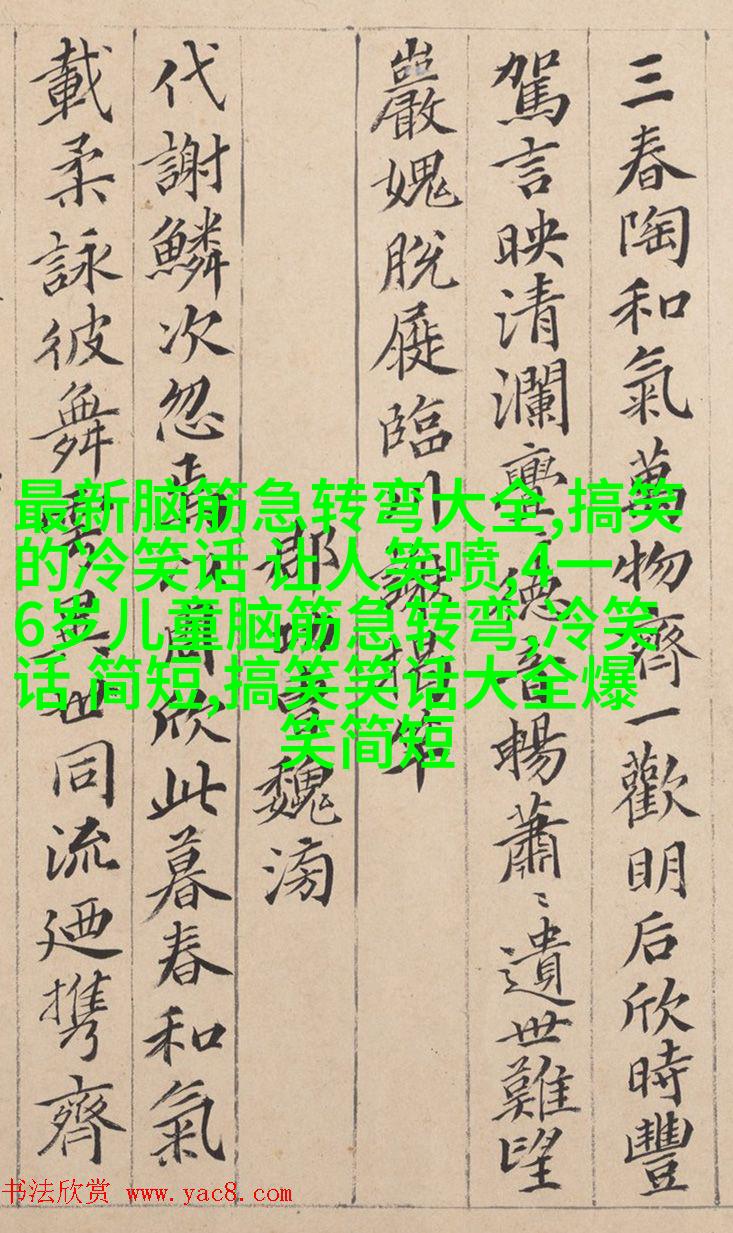 三春陶和氣萬物齊一歡明后欣時豐
駕言映清瀾亹〻德音暢蕭〻遺世難望
巖愧脫屣臨川謝揭竿
郡功曹魏滂
代謝鱗次忽焉以周欣此暮春和氣
載柔詠彼舞雩異世同流廼携齊
最新脑筋急转弯大全,搞笑
的冷笑话 让人笑喷,4一
6岁儿童脑筋急转弯,冷笑
话 简短,搞笑笑话大全爆
笑简短
书法欣赏 www.yac8.com